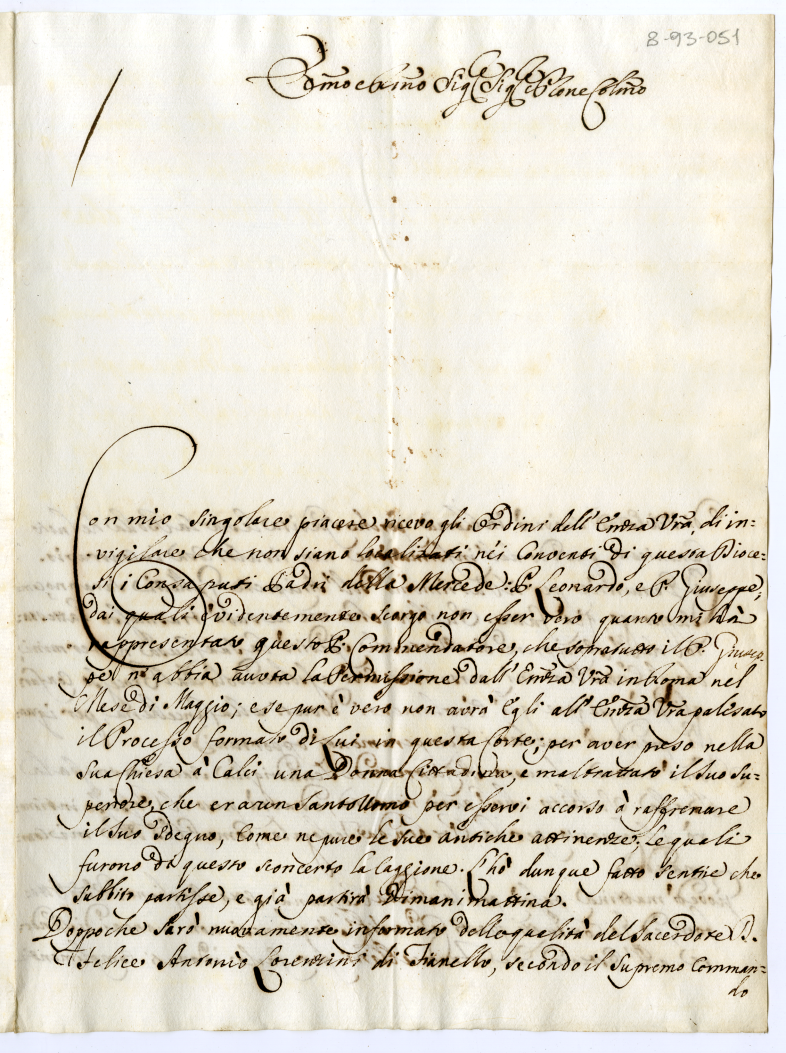 8-93-051
Emo e Rmo Sig.e Sig.e e Prone Colmo
Con mio singolare piacere ricevo gli Ordini dell'Emza Vrā, di in=
vigilare che non siano localizati néi Conventi di questa Dioce=
si i Consaputi Padri della Mercede: P. Leonardo, e P. Giuseppe,
dai quali évidentemente scorgo non esser vero quanto mi hà
rappresentato questo P. Commendatore, che sopratutto il P. Giusep=
pe n'abbia auuta la Permissione dall'Emza Vrā in Roma nel
Mese di Maggio; e se pur è vero non avrà Egli all'Emza Vrā palesato
il Processo formato di Lui in questa Corte; per aver preso nella
sua Chiesa à Calci una Donna Cittadina, e maltrattato il suo Su=
periore, che era un Sant'Uomo per esservi accorso à raffrenare
il suo sdegno, come ne pure le sue antiche attinenze, le quali
furono di questo sconcerto la Caggione. L'hò dunque fatto sentire che
subbito partisse, e già partirà Dimani mattina.
Doppoche sarò nuovamente informato delle qualità del Sacerdote D.
Felice Antonio Lorenzini di Fianello, secondo il Supremo Comman=
do